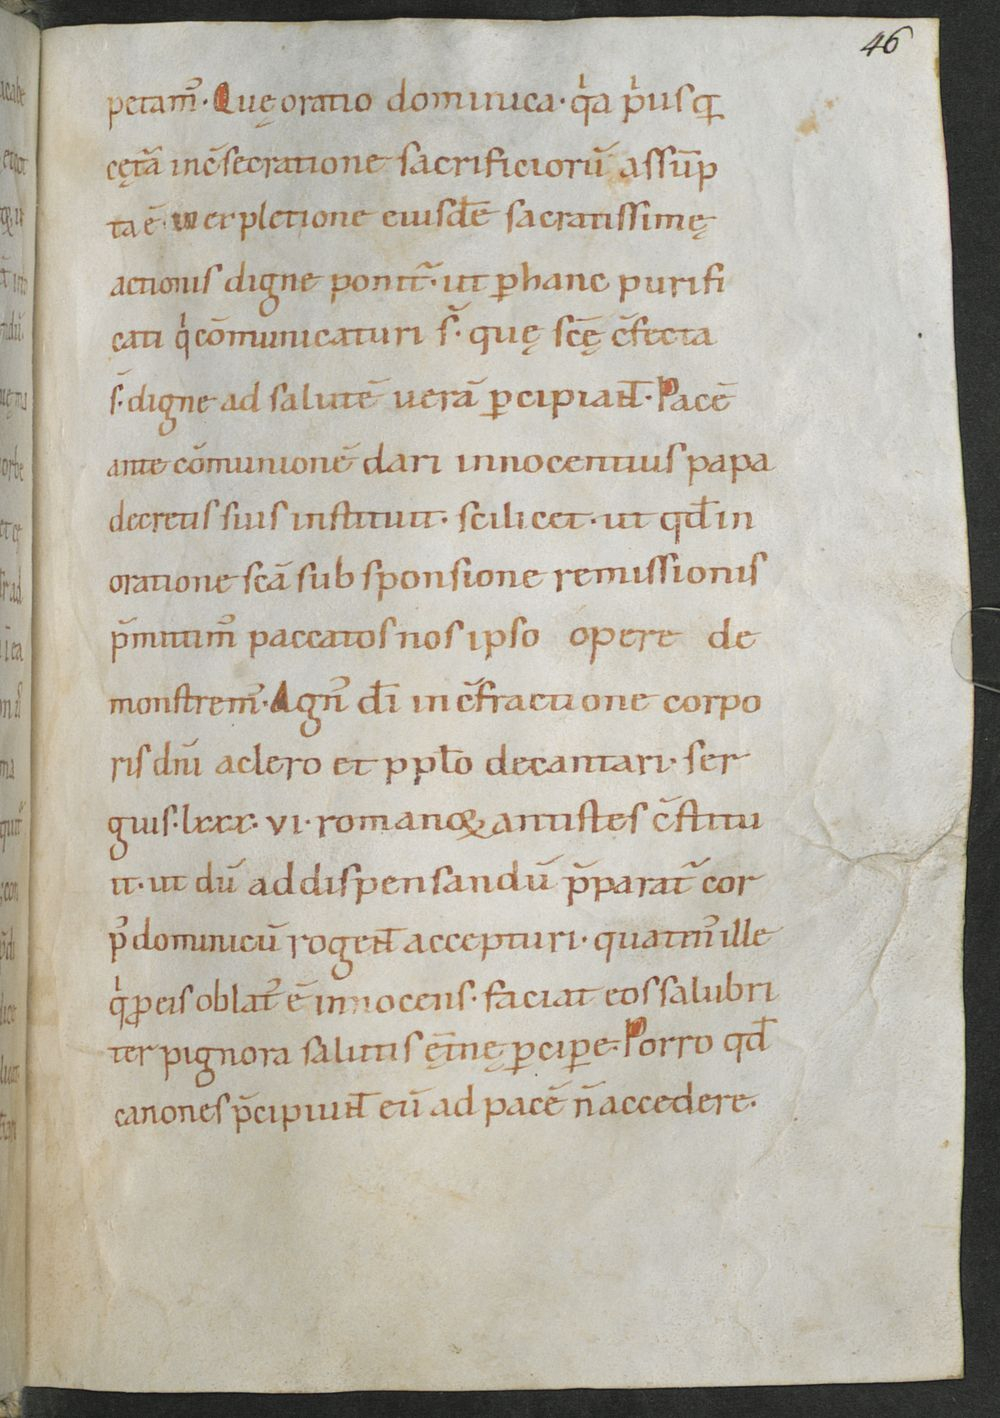 46
petam᷒· Quę oratio dominica· qͥa pͥusꝗ
cętã in c̃secratione sacrificiorũ assũp
ta ẽ· in expletione eiusdẽ sacratissimę
actionis digne ponit᷑· ut ꝑ hanc purifi
cati qͥ cõmunicaturi s᷑· quę scę̃ c̃fecta
s᷑· digne ad salutẽ uerã ꝑcipiant̄· Pacẽ
ante cõmunionẽ dari innocentius papa
decretis suis instituit· scilicet· ut qđ in
oratione scã sub sponsione remissionis
p̃mitim᷒ paccatos nos ipso opere de
monstrem᷒· Agn᷒ dī in c̃fractione corpo
ris dn̄i a clero et pplo̅ decantari· ser
gius· lxxx· vi· romanoꝝ antistes c̃stitu
it· ut dũ ad dispensandũ p̃parat᷑ cor
p᷒ dominicũ rogent̄ accepturi· quatin᷒ ille
qͥ ꝓ eis oblat᷒ ẽ innocens· faciat eos salubri
ter pignora salutis ęt̃nę ꝑciꝑe· Porro qđ
canones p̃cipiunt̄ eũ ad pacẽ ñ accedere·